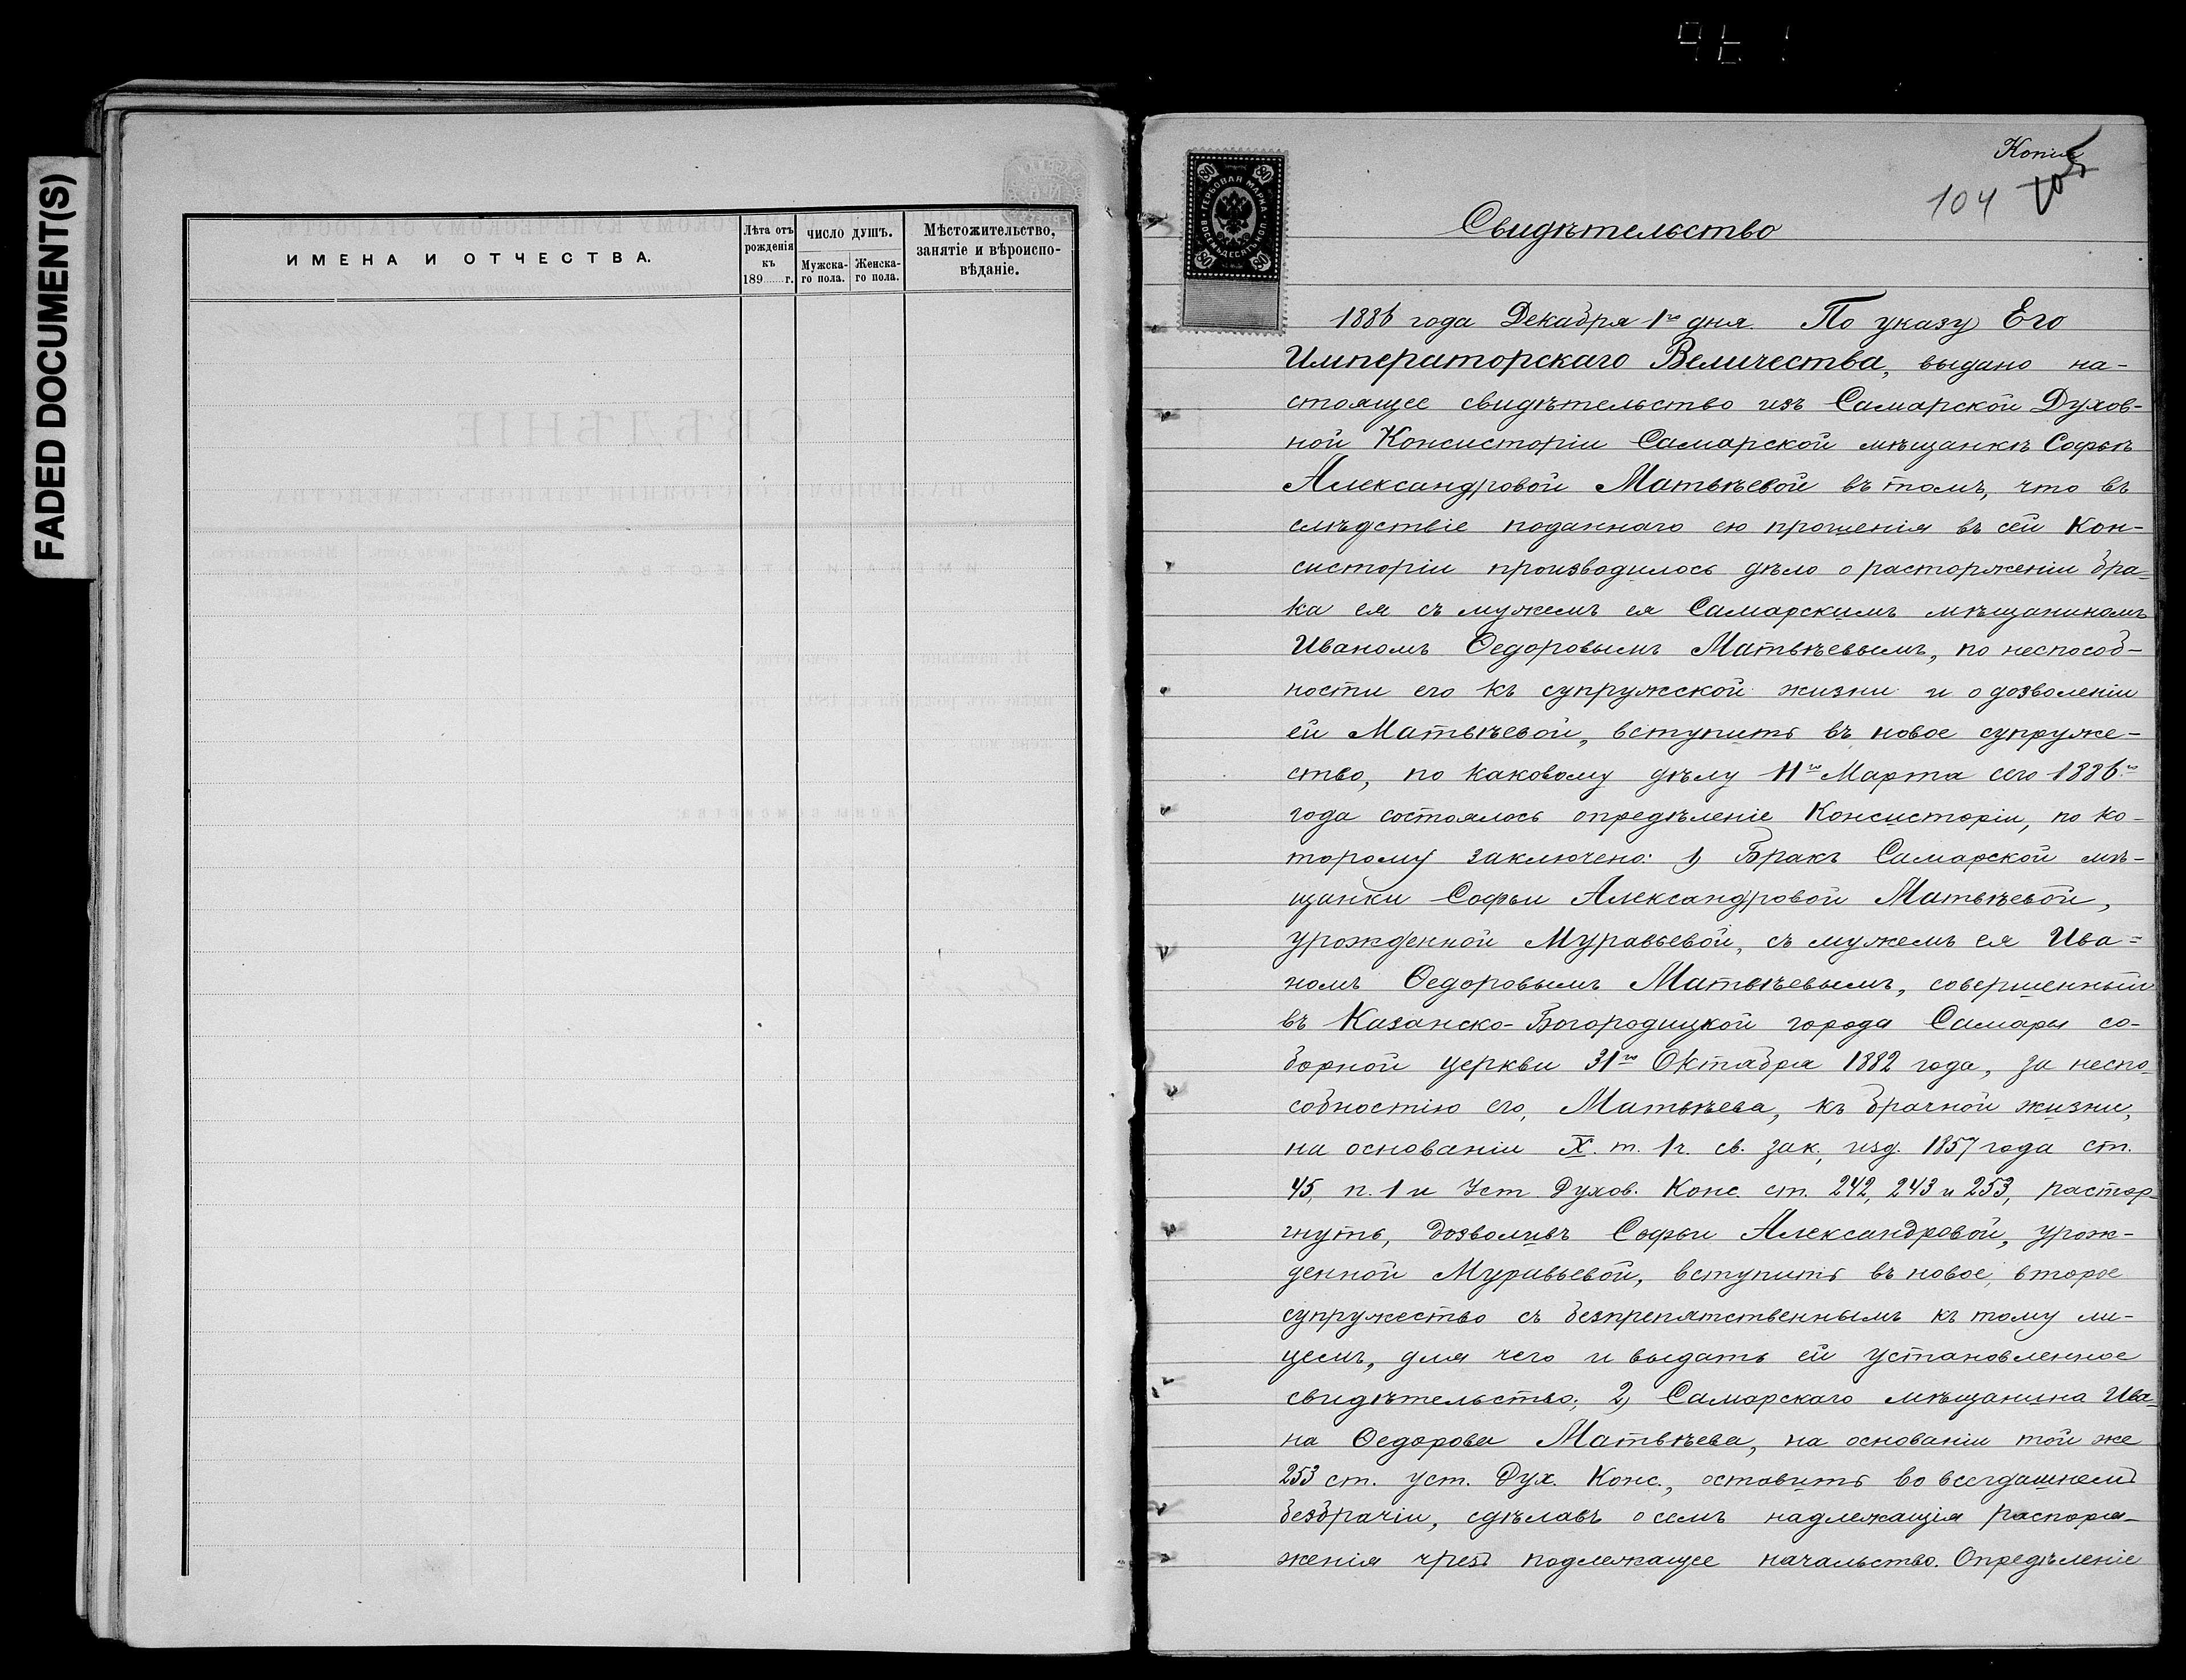 FADED DOCUMENT(S)
ИМЕНА И ОТЧЕСТВА.
Лѣта отъ рожденія къ 189......г.
ЧИСЛО ДУШЪ.
Мужска-го пола.
Женска-го пола.
Мѣстожительство, занятіе и вѣроиспо-вѣданіе.
Копія
104 105
80 80
ГЕРБОВАЯ МАРКА
ВОСЕМЬДЕСЯТЪ КОП.
80 80
Свидѣтельство
1886 года Декабря 1го дня. По указу Его
Императорскаго Величества, выдано на-
стоящее свидѣтельство изъ Самарской Духов-
ной Консисторіи Самарской мѣщанкѣ Софьѣ
Александровой Матвѣевой въ томъ, что въ
слѣдствіе поданнаго ею прошенія въ сей Кон-
систоріи производилось дѣло о расторженіи бра-
ка ея съ мужемъ ея Самарскимъ мѣщаниномъ
Иваномъ Ѳедоровымъ Матвѣевымъ, по неспособ-
ности его къ супружской жизни и о дозволеніи
ей Матвѣевой, вступить въ новое супруже-
ство, по каковому дѣлу 11го Марта сего 1886го
года состоялось опредѣленіе Консисторіи, по ко-
торому заключено: 1) Бракъ Самарской мѣ-
щанки Софьи Александровой Матвѣевой,
урожденной Муравьевой, съ мужемъ ея Ива=
номъ Ѳедоровымъ Матвѣевымъ, совершенный
въ Казанско-Богородицкой города Самары со-
борной церкви 31го Октября 1882 года, за неспо-
собностію его, Матвѣева, къ брачной жизни,
на основаніи X. т. 1 ч. св. зак., изд. 1857 года ст.
45, п. 1 и Уст. Духов. Конс. ст. 242, 243 и 253, растор-
гнуть, дозволивъ Софьи Александровой, урож-
денной Муравьевой, вступить въ новое, второе
супружество съ безпрепятственнымъ къ тому ли-
цемъ, для чего и выдать ей установленное
свидѣтельство; 2) Самарскаго мѣщанина Ива-
на Ѳедорова Матвѣева, на основаніи той же
253 ст. уст. Дух. Конс., оставить во всегдашнемъ
безбрачіи, сдѣлавъ о семъ надлежащія распоря-
женія чрезъ подлежащее начальство. Опредѣленіе